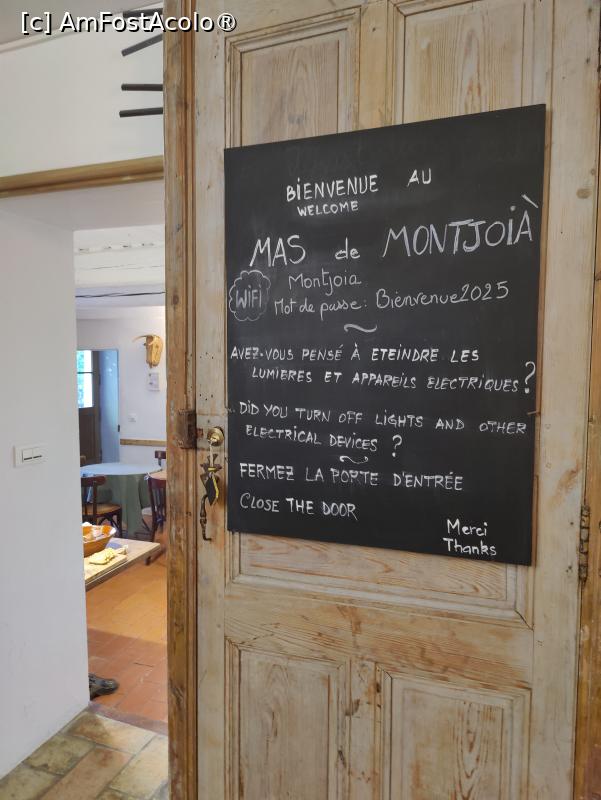 [c] AmFostAcolo®
BiENVENUE AU
WELCOME
MAS de MONTJOIÀ
WiFi
Montjoia
Mot de passe: Bienvenue2025
AVEZ-VOUS PENSÉ À ETEINDRE LES
LUMIERES ET APPAREILS ELECTRIQUES?
DID YOU TURN OFF LIGHTS AND OTHER
ELECTRICAL DEVICES ?
FERMEZ LA PORTE D'ENTRÉE
CLOSE THE DOOR
Merci
Thanks